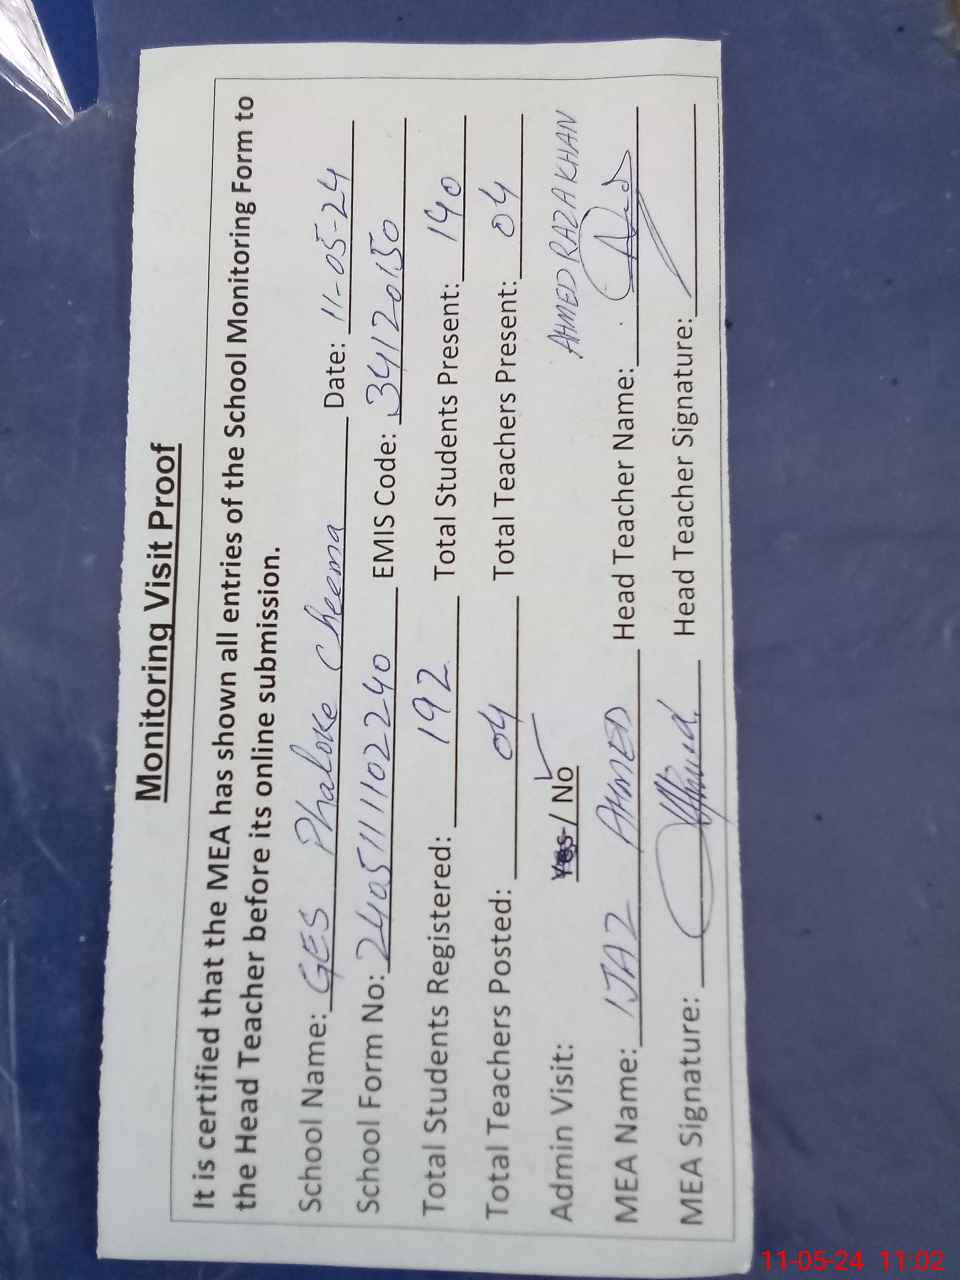 Monitoring Visit Proof
It is certified that the MEA has shown all entries of the School Monitoring Form to
the Head Teacher before its online submission.
School Name: GES Phaloke Cheema Date: 11-05-24
School Form No: 2405111102240 EMIS Code: 34120150
Total Students Registered: 192 Total Students Present: 140
Total Teachers Posted: 04 Total Teachers Present: 04
Admin Visit: Yes / No
AHMED RAZA KHAN
MEA Name: IJAZ AHMED Head Teacher Name:
MEA Signature: Head Teacher Signature:
11-05-24 11:02